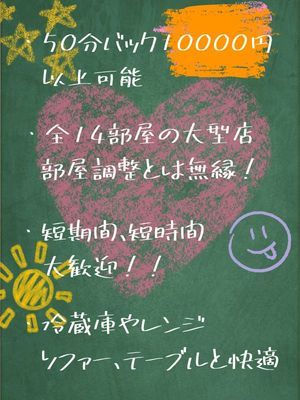 ・50分バック10000円
以上可能
・全14部屋の大型店
部屋調整とは無縁！
・短期間、短時間
大歓迎！！
・冷蔵庫やレンジ
ソファー、テーブルと快適